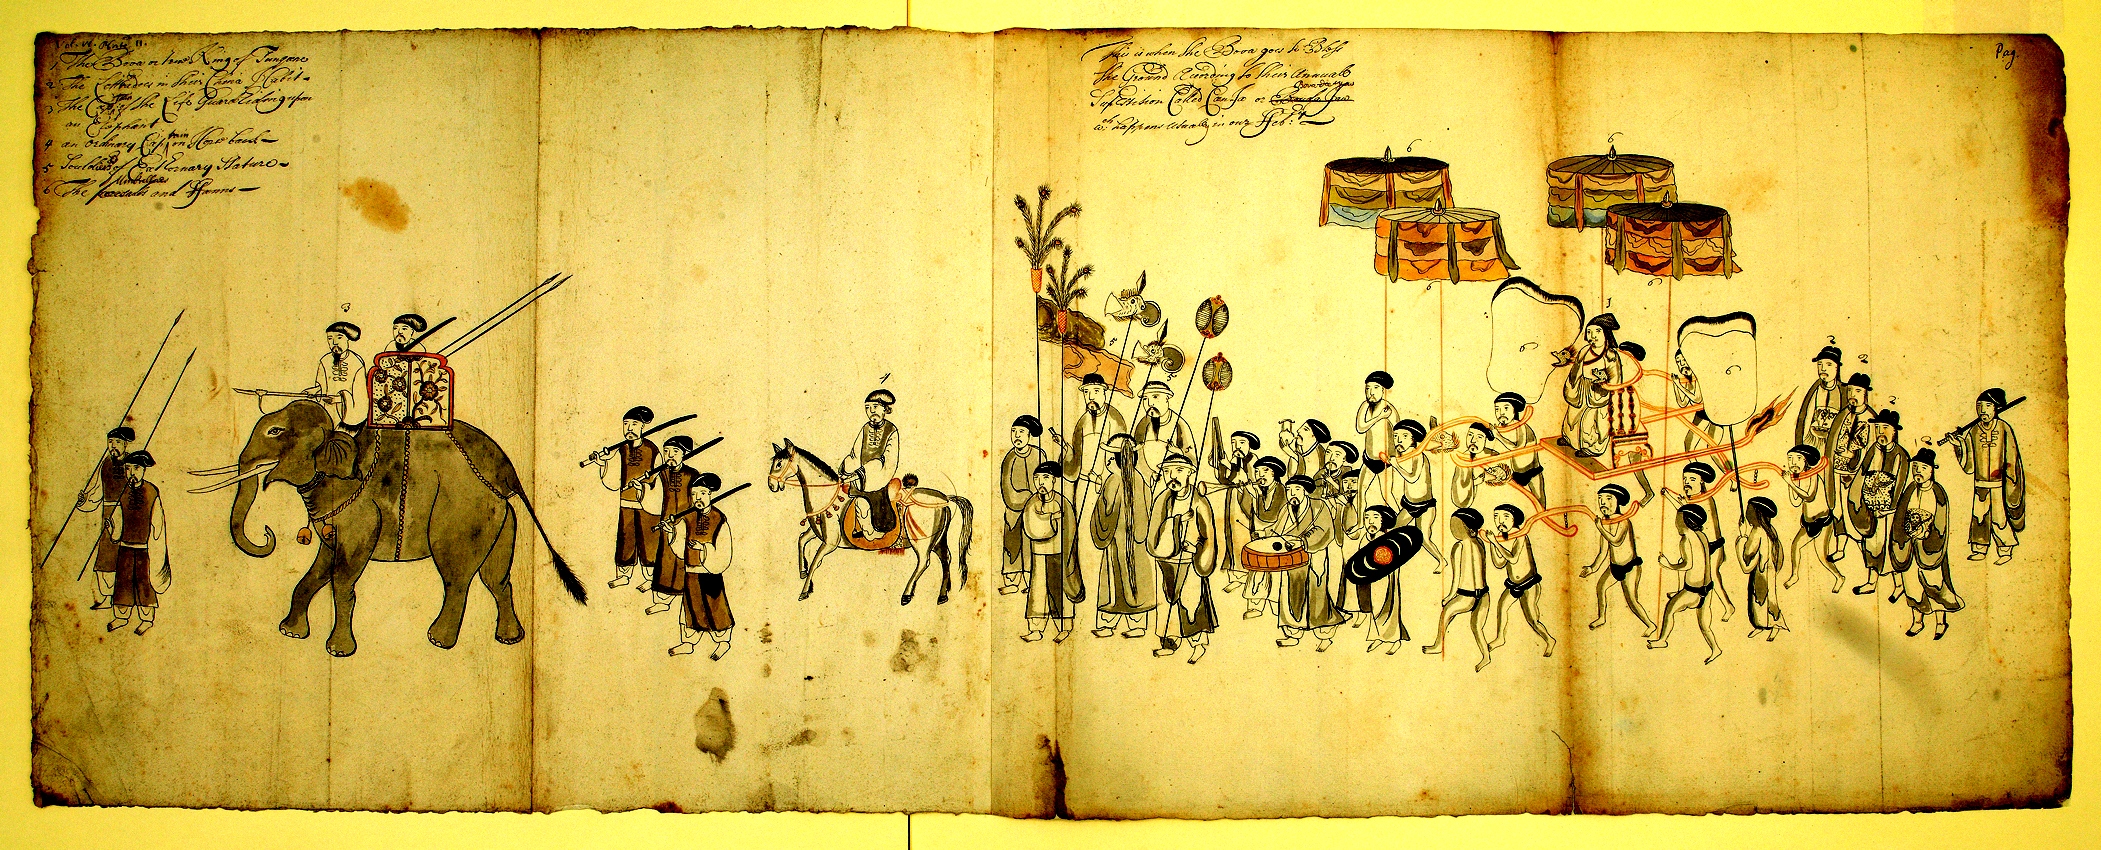 Vol. VI. Plate 11.
1 The Bova or true King of Tunquin
2 The Lettredoes in their China Habit
3 The Capt of the Life Guard Riding upon
an Elephant
4 an ordinary Captain on Hors back
5 Souldiers of Extrernary Stature
6 The Umbrellaes and Fanns
This is when the Bova goes to Bless
the Ground According to their Annuall
Superstition Called Can Ja or Bova Dee Yaw
wch happens usually in our Feb:ry
Pag.
3
4
5
5
6
6
6
6
6
6
1
2
2
2
2